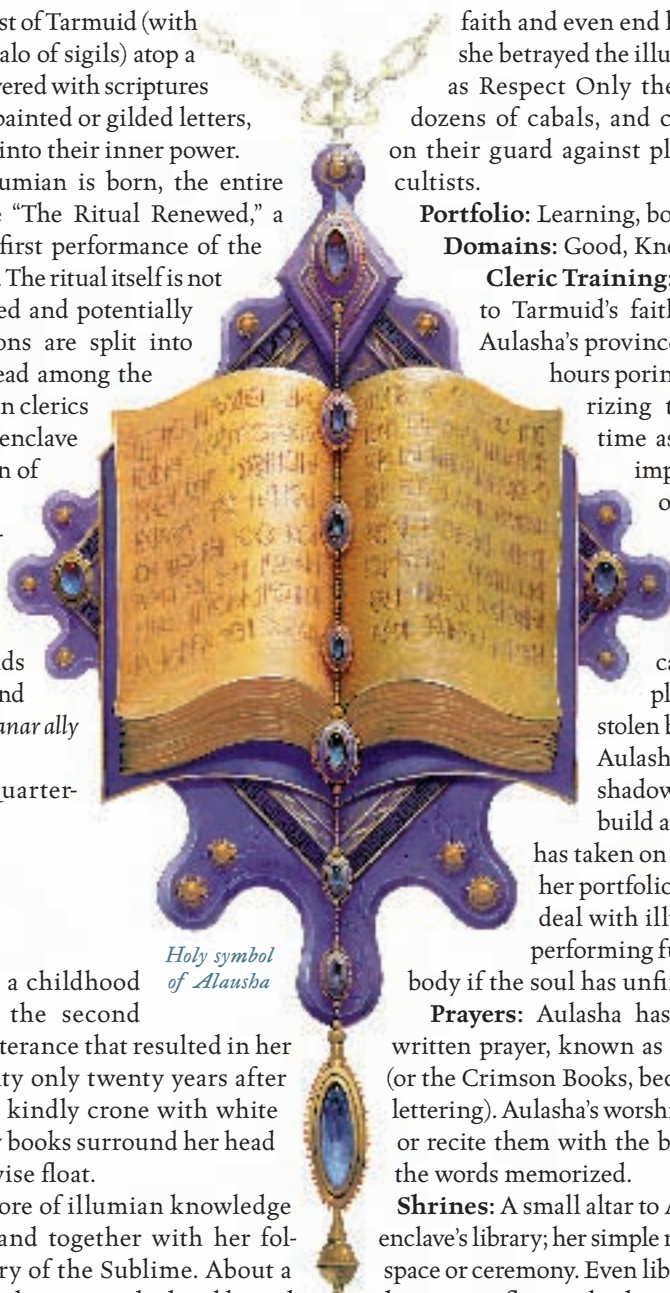 st of Tarmuid (with
alo of sigils) atop a
vered with scriptures
painted or gilded letters,
into their inner power.
umian is born, the entire
e “The Ritual Renewed,” a
first performance of the
. The ritual itself is not
ed and potentially
ons are split into
ead among the
n clerics
enclave
n of
ds
nd
anar ally
quarter-
a childhood
the second
terance that resulted in her
ity only twenty years after
kindly crone with white
y books surround her head
vise float.
ore of illumian knowledge
and together with her fol-
ry of the Sublime. About a
Holy symbol
of Alausha
faith and even end
she betrayed the illu
as Respect Only the
dozens of cabals, and c
on their guard against pl
cultists.
Portfolio: Learning, bo
Domains: Good, Kno
Cleric Training:
to Tarmuid’s faith
Aulasha’s province
hours porin
rizing t
time as
imp
o
ca
pl
stolen b
Aulash
shadow
build a
has taken on
her portfolio
deal with illu
performing fu
body if the soul has unfi
Prayers: Aulasha has
written prayer, known as
(or the Crimson Books, bec
lettering). Aulasha’s worshi
or recite them with the b
the words memorized.
Shrines: A small altar to A
enclave’s library; her simple r
space or ceremony. Even lib